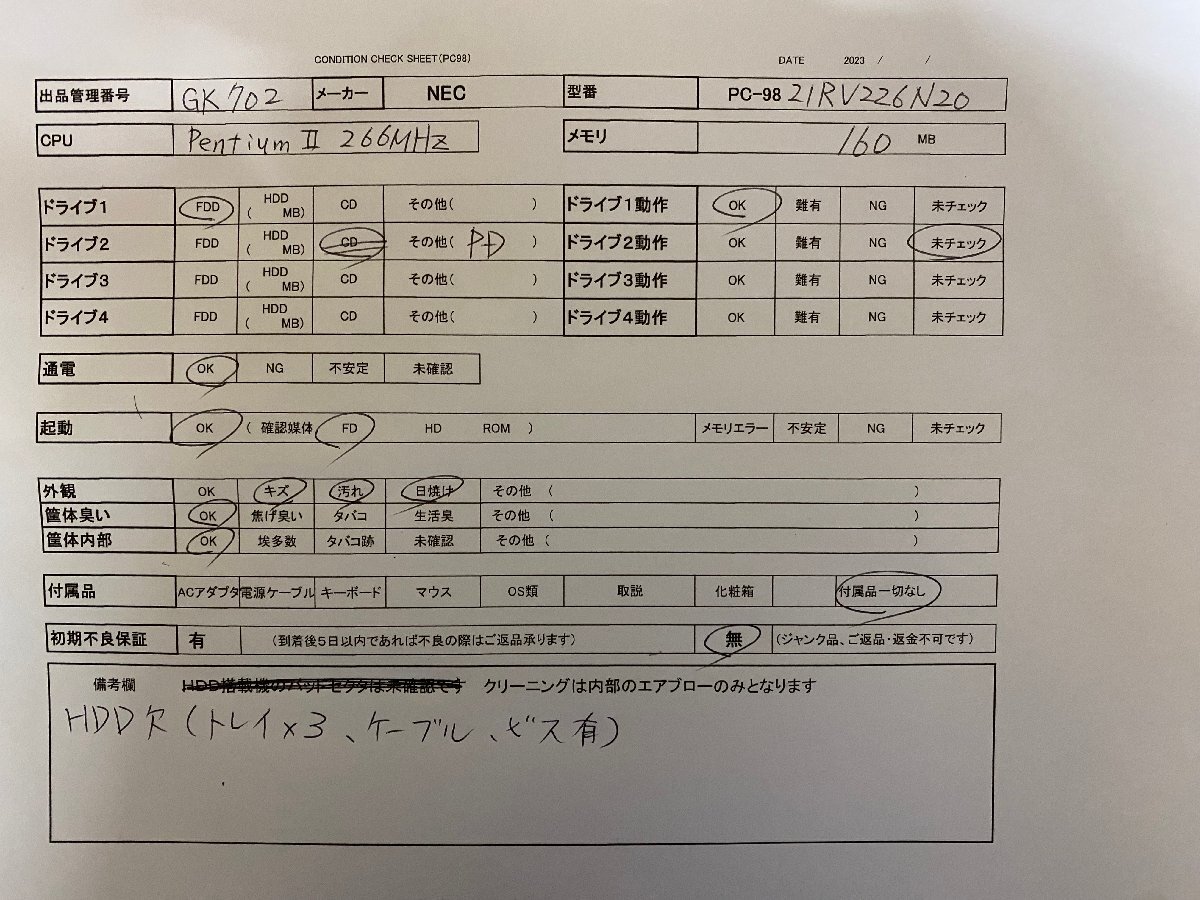 CONDITION CHECK SHEET(PC98) DATE 2023 / /
出品管理番号 GK702 メーカー NEC 型番 PC-98 21RV226N20
CPU Pentium II 266MHz メモリ 160 MB
ドライブ1 FDD HDD ( MB) CD その他( ) ドライブ1動作 OK 難有 NG 未チェック
ドライブ2 FDD HDD ( MB) CD その他( PD ) ドライブ2動作 OK 難有 NG 未チェック
ドライブ3 FDD HDD ( MB) CD その他( ) ドライブ3動作 OK 難有 NG 未チェック
ドライブ4 FDD HDD ( MB) CD その他( ) ドライブ4動作 OK 難有 NG 未チェック
通電 OK NG 不安定 未確認
起動 OK ( 確認媒体 FD HD ROM ) メモリエラー 不安定 NG 未チェック
外観 OK キズ 汚れ 日焼け その他 ( )
筐体臭い OK 焦げ臭い タバコ 生活臭 その他 ( )
筐体内部 OK 埃多数 タバコ跡 未確認 その他 ( )
付属品 ACアダプタ 電源ケーブル キーボード マウス OS類 取説 化粧箱 付属品一切なし
初期不良保証 有 (到着後5日以内であれば不良の際はご返品承ります) 無 (ジャンク品、ご返品・返金不可です)
備考欄 HDD搭載機のバッドセクタは未確認です クリーニングは内部のエアブローのみとなります
HDD欠(トレイx3、ケーブル、ビス有)